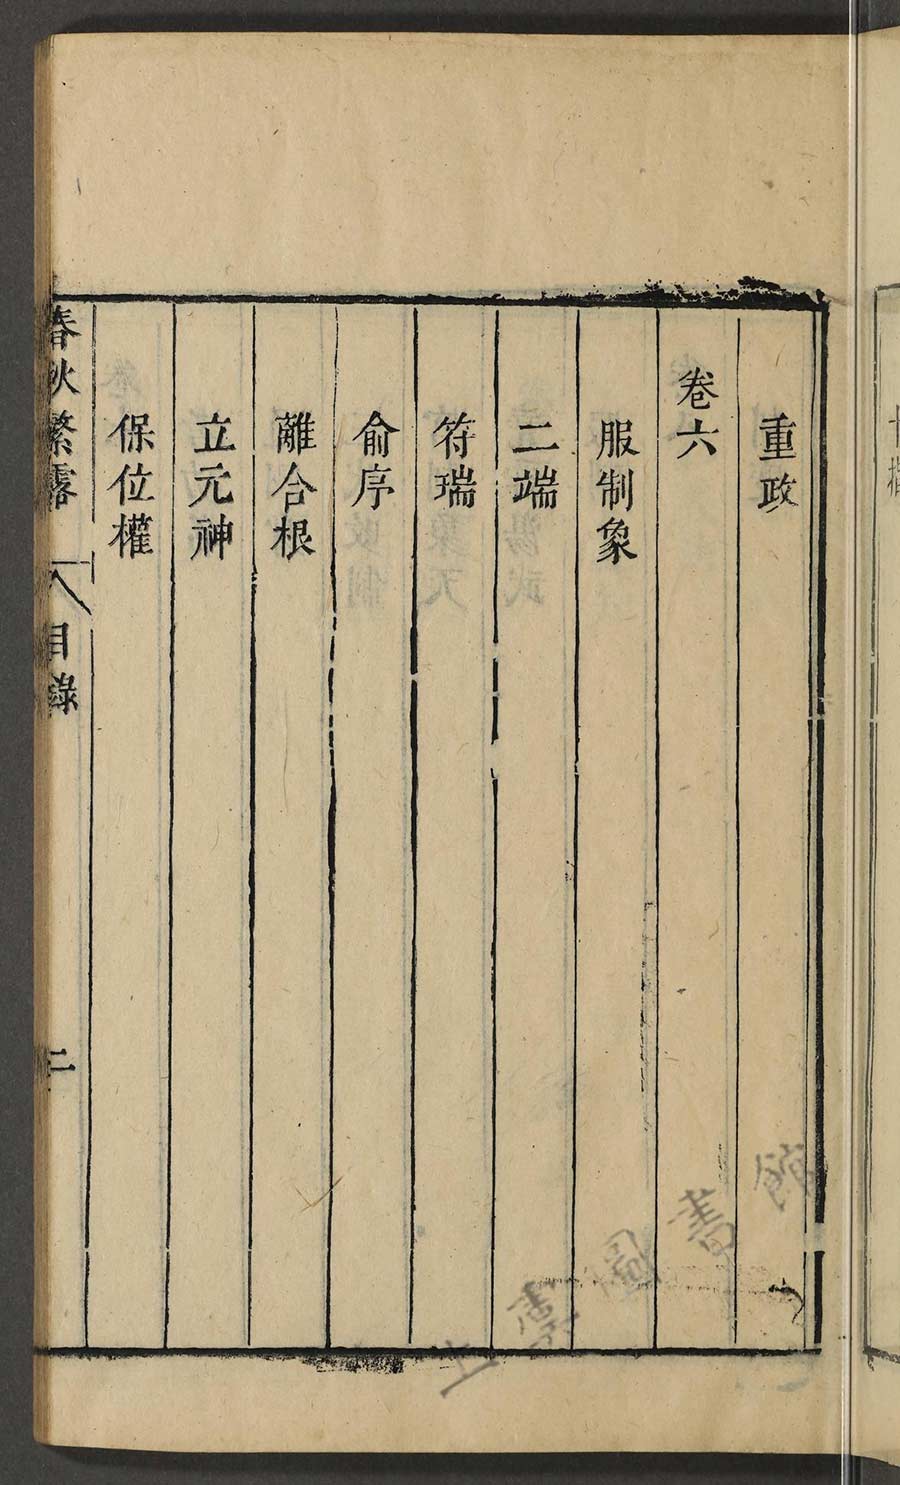 重政
卷六
服制象
二端
符瑞
俞序
離合根
立元神
保位權
春秋繁露
目錄
二